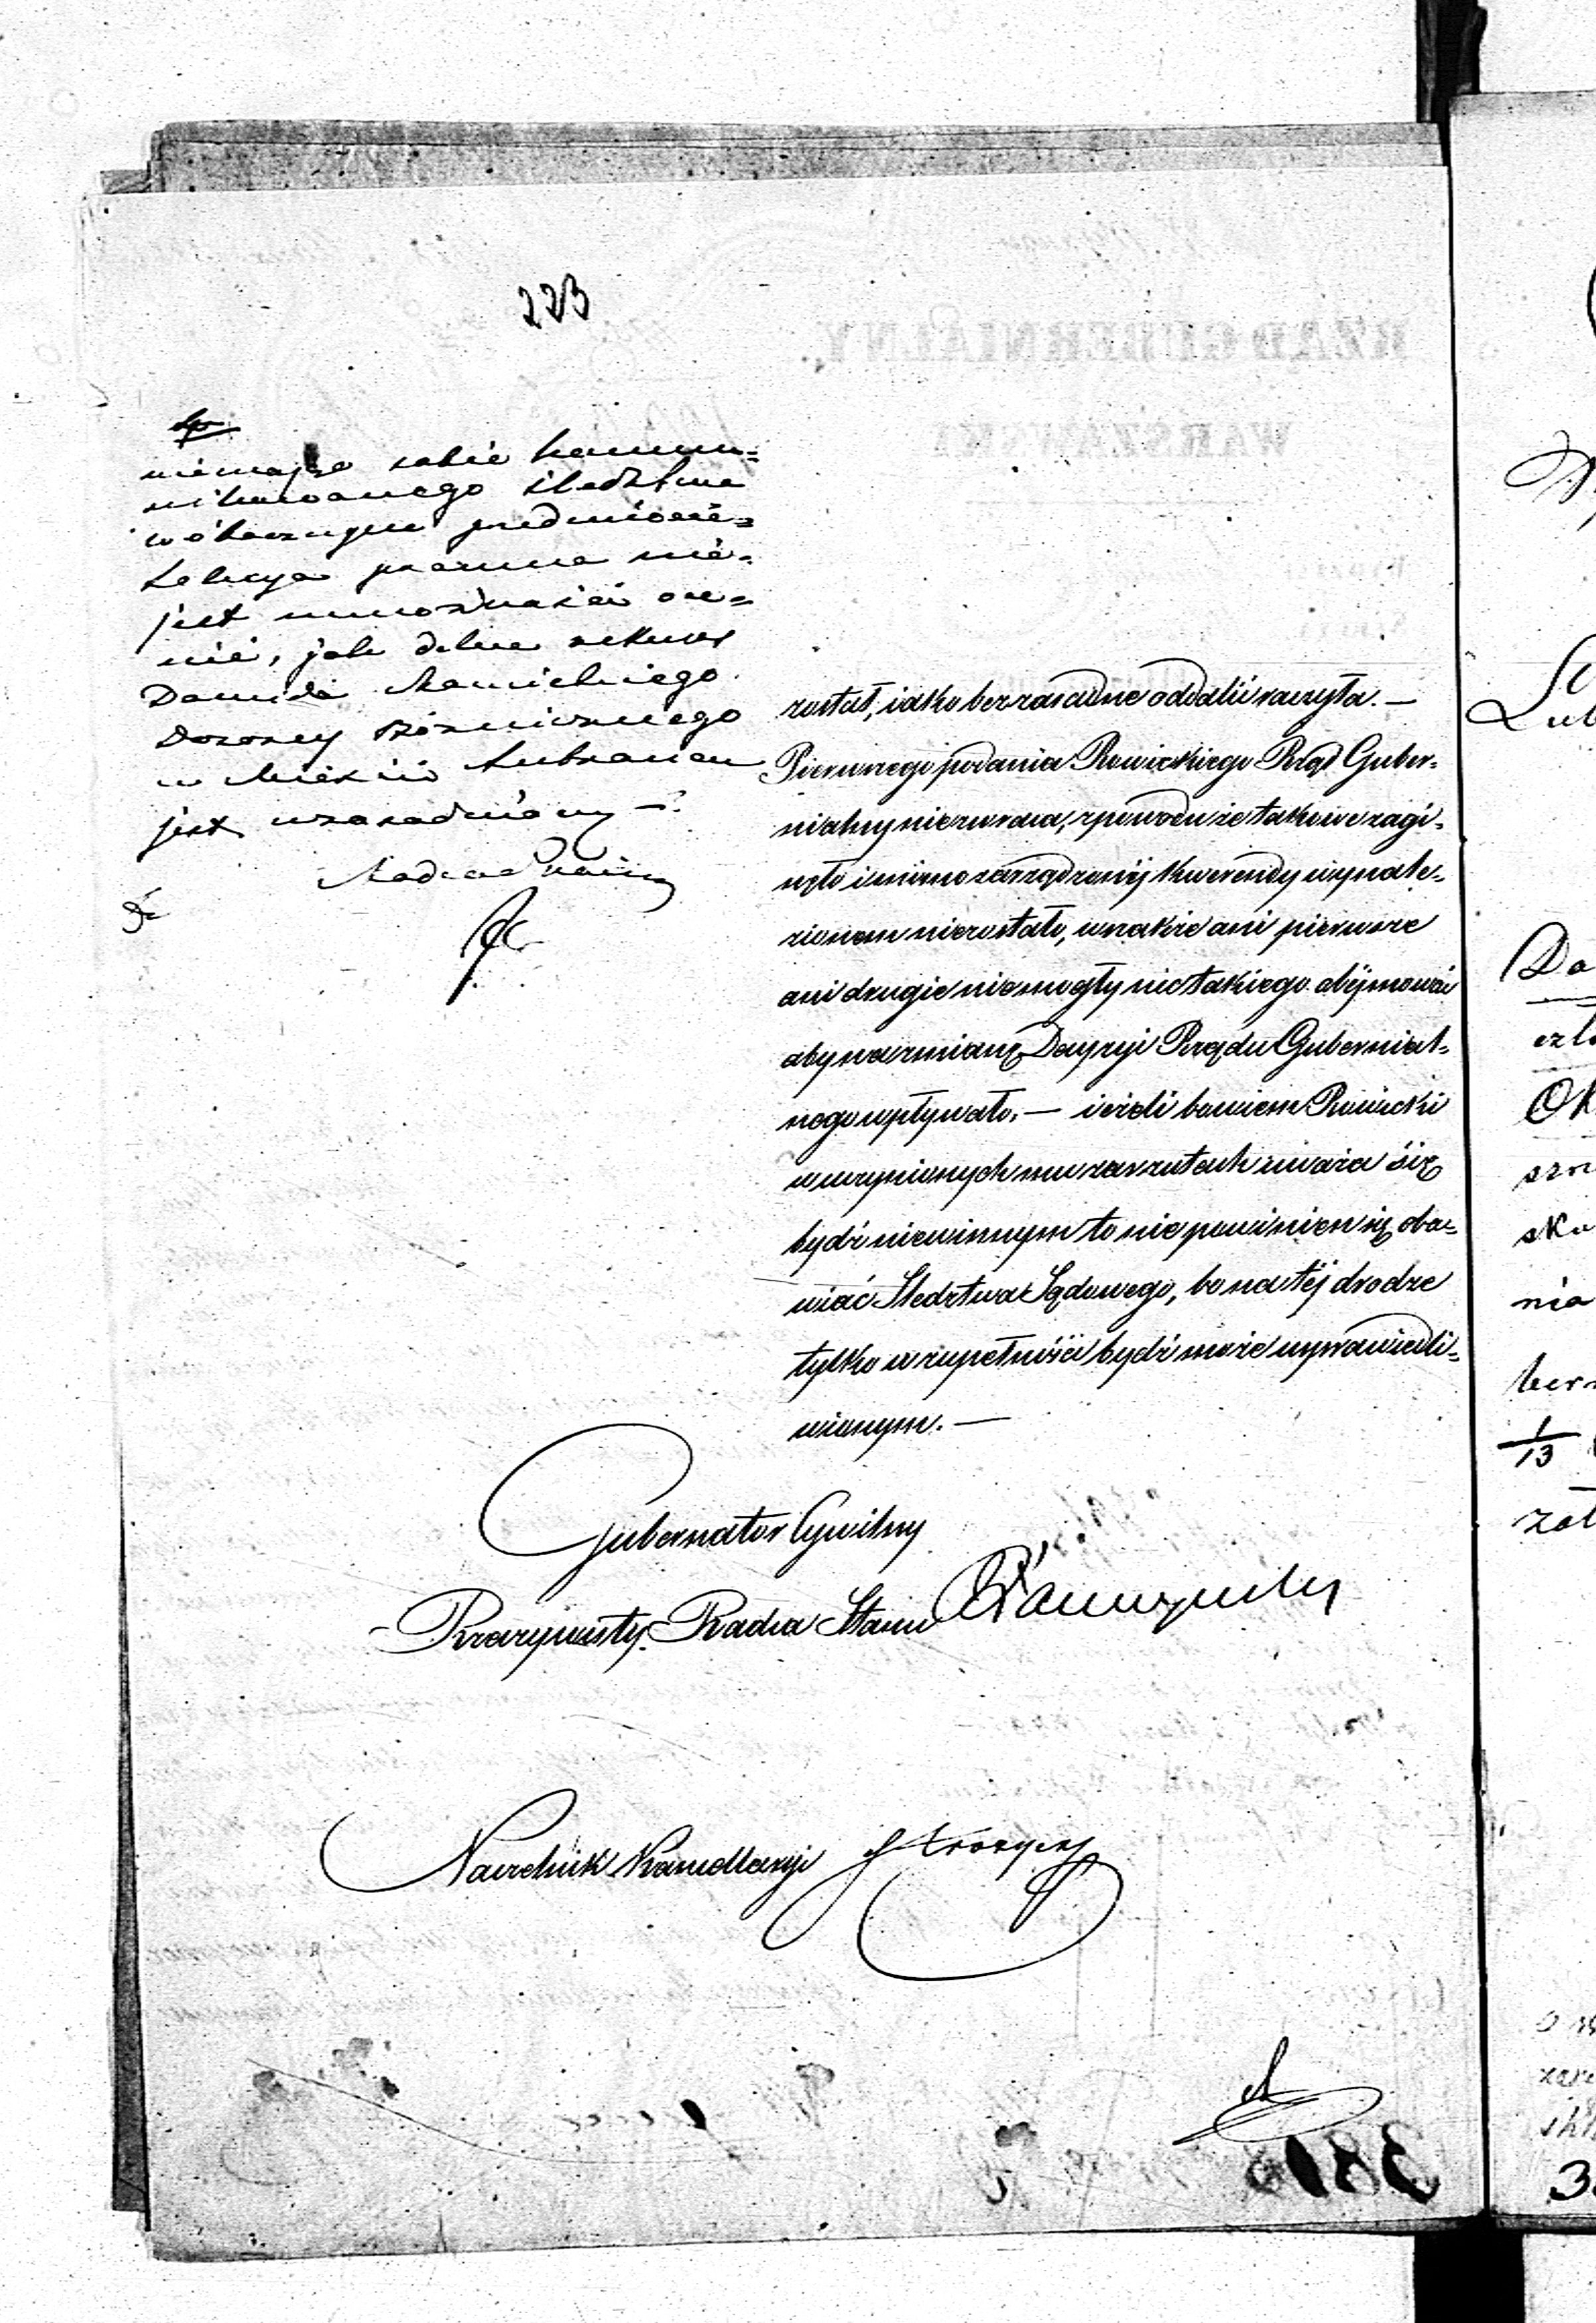 223
niemając sobie kommu=
nikowanego śledztwa
w obecnym przedmiocie=
Sekcya prawna nie=
jest w możności oce=
nić, jak dalece rekurs
Dawida Rawickiego
Dozorcy Bóżniczego
w Mieście Lubraniu
jest uzasadniony —
Radca Prawny
został, iako bezzasadne oddalić raczyła. —
Pierwszego podania Rawickiego Rząd Guber=
nialny niezwraca, z powodu że takowe zagi=
nęło i mimo zarządzonéj kwerendy wynale=
zionem niezostało, wszakże ani pierwsze
ani drugie niemogły nic takiego obéjmować
aby na zmianę Decyzyi Rządu Gubernial=
nego wpływało. — ieżeli bowiem Rawicki
w uczynionych mu zarzutach uważa się
bydź niewinnym to nie powinien się oba=
wiać Śledztwa Sądowego, bo na téj drodze
tylko w zupełności bydź może usprawiedli=
wionym. —
Gubernator Cywilny
Rzeczywisty Radca Stanu
Naczelnik Kancellaryi